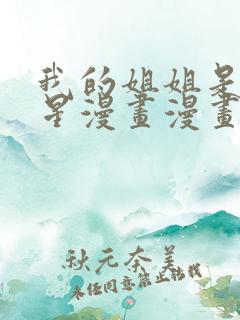 我的姐姐是
星漫畫漫畫
秋元奈美
未经同意禁止转载